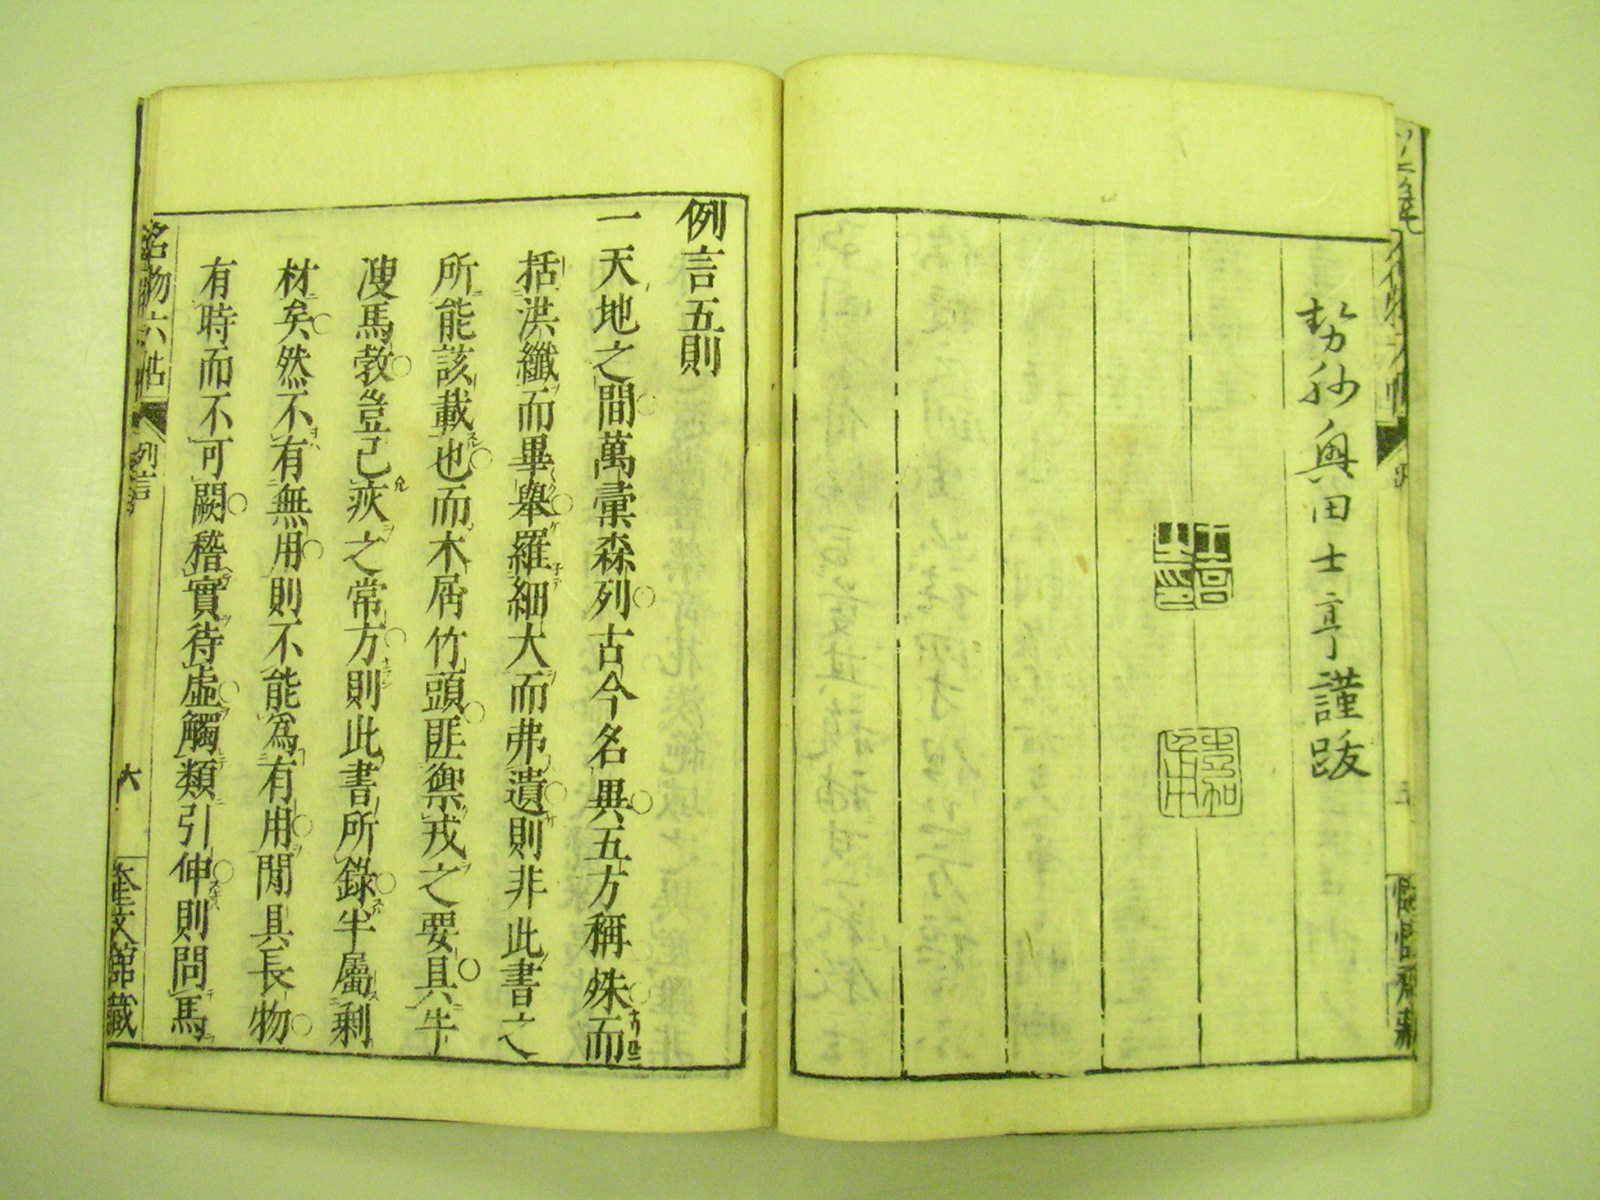 勢州奧田士亨謹跋
例言五則
一天地之間萬彙森列古今名異五方稱殊而
括洪纖而畢舉羅細大而弗遺則非此書之
所能該載也而木屑竹頭匪禦戎之要具牛
溲馬勃豈已疢之常方則此書所錄半屬剩
材矣然不有無用則不能爲有用閒具長物
有時而不可闕稽實待虛觸類引伸則問馬
名物六帖
例言
六
奎文館藏